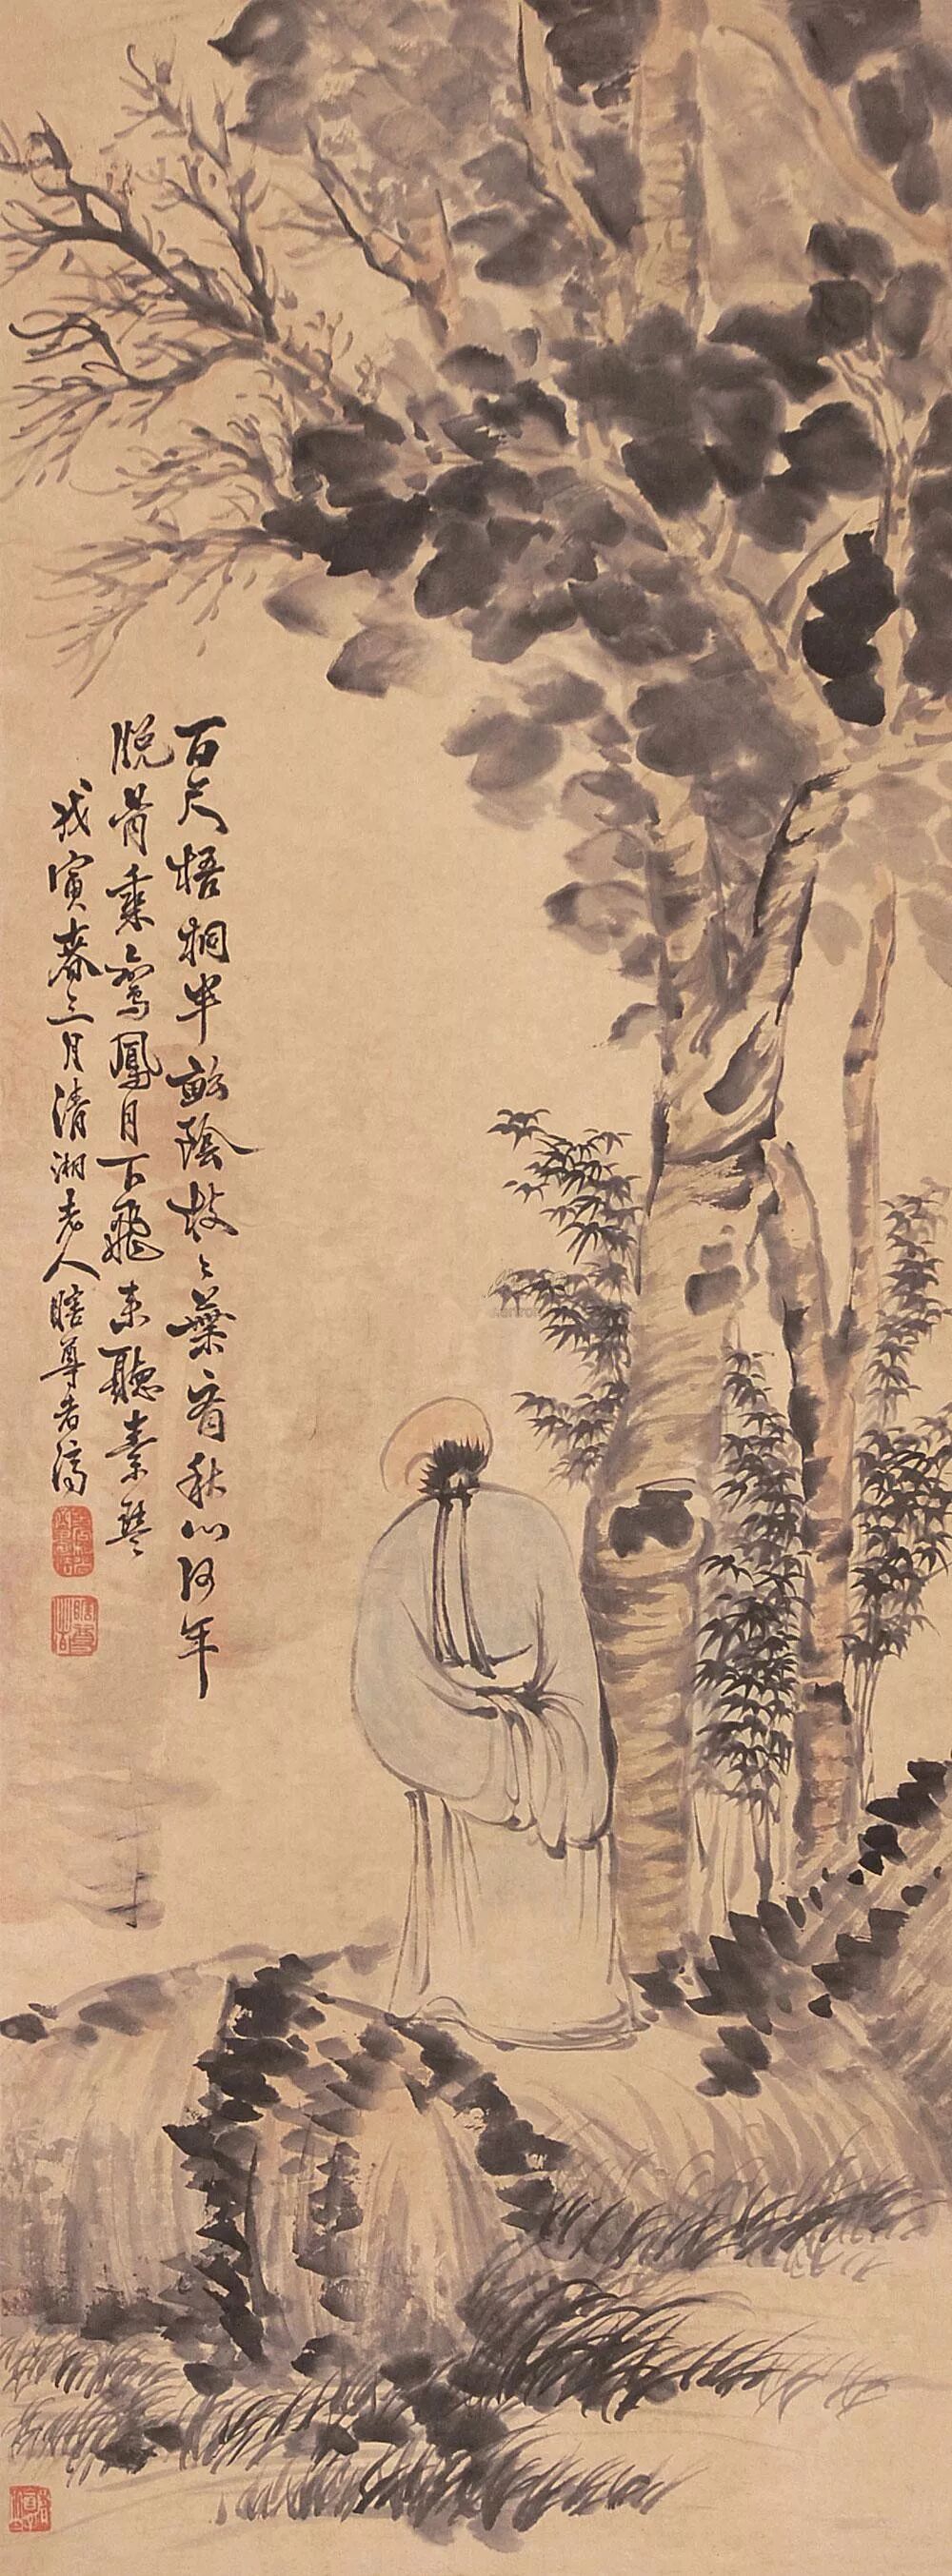 百尺梧桐半畝陰枝々葉々有秋心何年
脫骨乘鸞鳳月下飛來聽素琴
戊寅春三月清湘老人瞎尊者濟